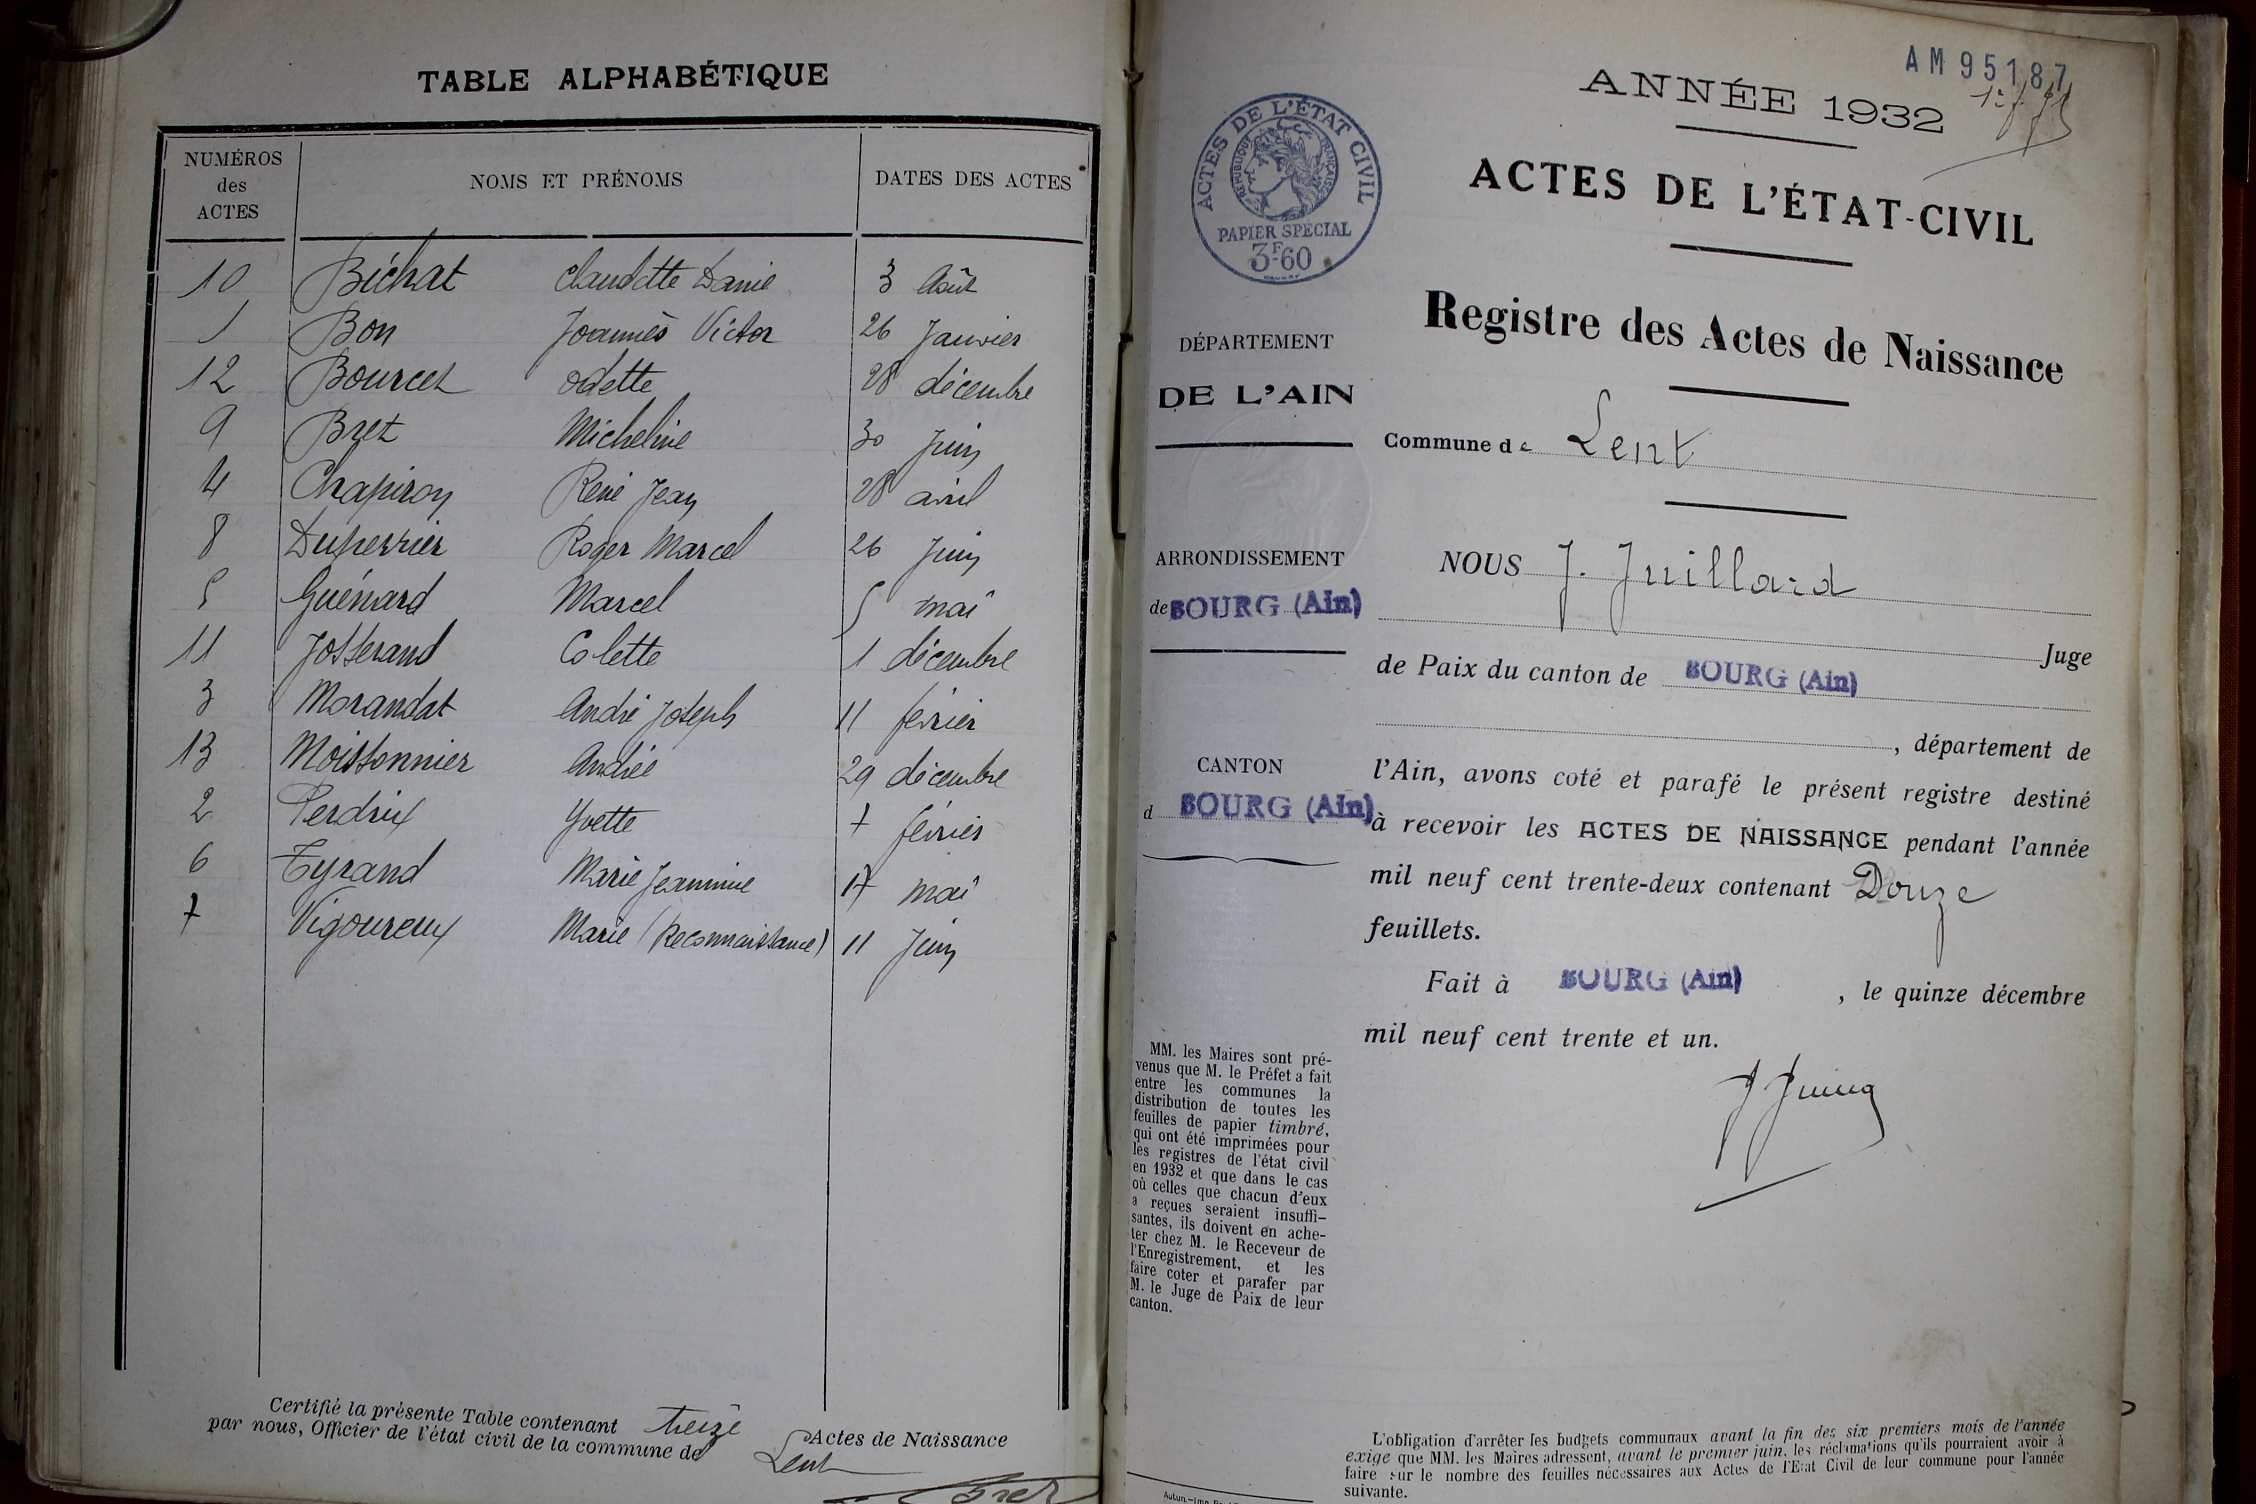 TABLE ALPHABÉTIQUE
NUMÉROS des ACTES NOMS ET PRÉNOMS DATES DES ACTES
10 Béchat Claudette Danie 3 Août
1 Bon Joannès Victor 26 Janvier
12 Bourcet Odette 28 décembre
9 Bret Micheline 30 Juin
4 Chapiron René Jean 28 avril
8 Duperrier Roger Marcel 26 Juin
5 Guénard Marcel 5 mai
11 Josserand Colette 1 décembre
3 Morandat André Joseph 11 février
13 Moissonnier Andrée 29 décembre
2 Perdrix Yvette 7 février
6 Tyrand Marie Jeannine 17 mai
7 Vigoureux Marie (Reconnaissance) 11 Juin
Certifié la présente Table contenant treize Actes de Naissance
par nous, Officier de l'état civil de la commune de Lent
Bret
AM95187
ANNÉE 1932
ACTES DE L'ÉTAT-CIVIL
Registre des Actes de Naissance
Commune de Lent
NOUS J. Juillard
Juge
de Paix du canton de BOURG (Ain)
, département de
l'Ain, avons coté et parafé le présent registre destiné
à recevoir les ACTES DE NAISSANCE pendant l'année
mil neuf cent trente-deux contenant Douze
feuillets.
Fait à BOURG (Ain), le quinze décembre
mil neuf cent trente et un.
ACTES DE L'ÉTAT CIVIL
RÉPUBLIQUE FRANÇAISE
PAPIER SPECIAL
3F60
DÉPARTEMENT
DE L'AIN
ARRONDISSEMENT
de BOURG (Ain)
CANTON
d BOURG (Ain)
MM. les Maires sont pré-
venus que M. le Préfet a fait
entre les communes la
distribution de toutes les
feuilles de papier timbré,
qui ont été imprimées pour
les registres de l'état civil
en 1932 et que dans le cas
où celles que chacun d'eux
a reçues seraient insuffi-
santes, ils doivent en ache-
ter chez M. le Receveur de
l'Enregistrement, et les
faire coter et parafer par
M. le Juge de Paix de leur
canton.
L'obligation d'arrêter les budgets communaux avant la fin des six premiers mois de l'année
exige que MM. les Maires adressent, avant le premier juin, les réclamations qu'ils pourraient avoir à
faire sur le nombre des feuilles nécessaires aux Actes de l'Etat Civil de leur commune pour l'année
suivante.